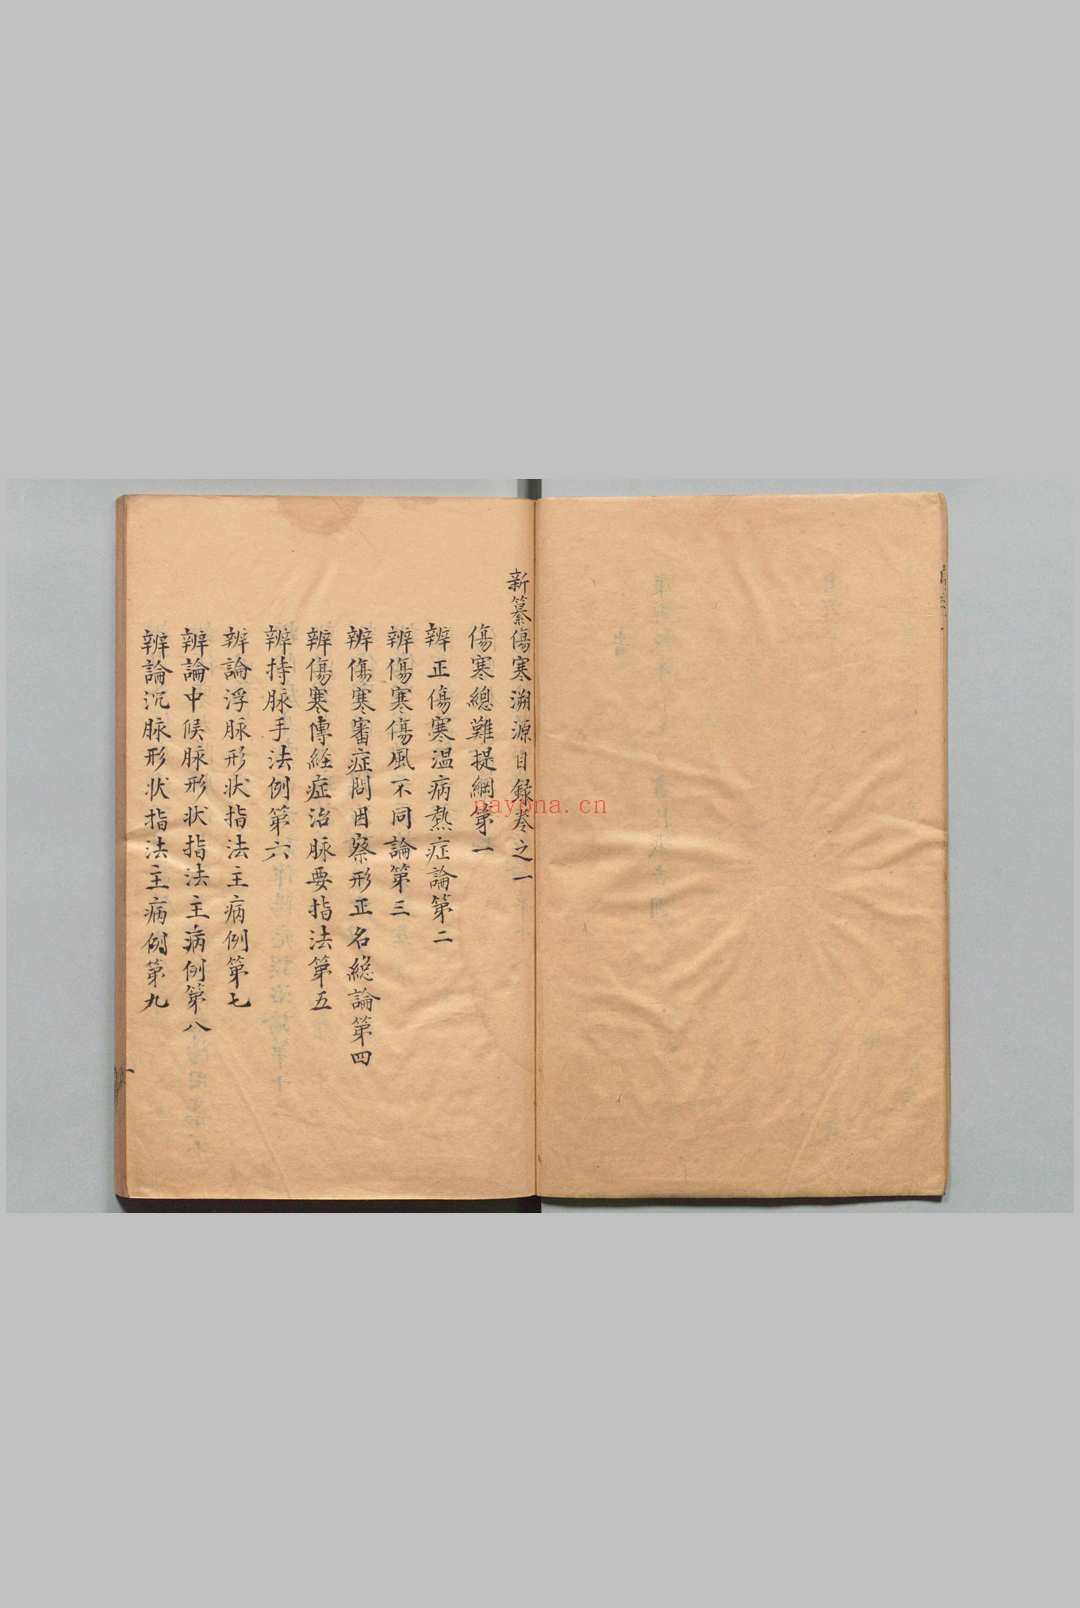 新纂傷寒溯源目錄卷之一
傷寒總難提綱第一
辨正傷寒温病熱症論第二
辨傷寒傷風不同論第三
辨傷寒審症問因察形正名總論第四
辨傷寒傳經症治脉要指法第五
辨持脉手法例第六
辨論浮脉形状指法主病例第七
辨論中候脉形状指法主病例第八
辨論沉脉形状指法主病例第九
nayona.cn